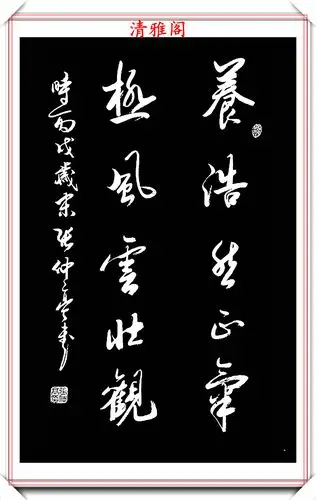 清雅阁
養浩然正氣
極風雲壯觀
時丙戌歲末張仲亭書